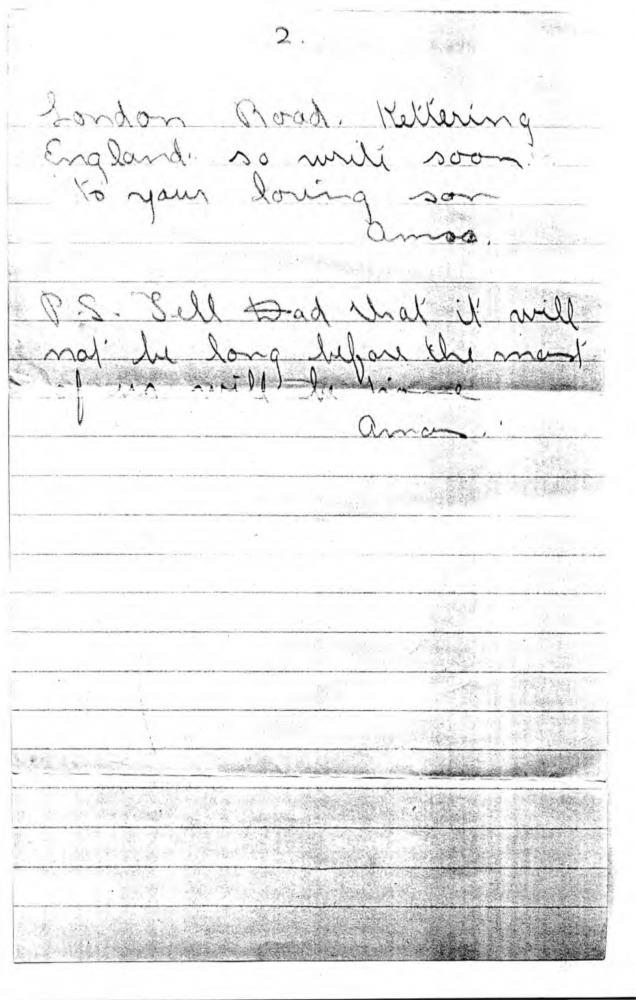 2.
London Road. Kettering
England. so write soon.
to your loving son
Amos.
P.S. Tell Dad that it will
not be long before the most
of us will be
Amos.